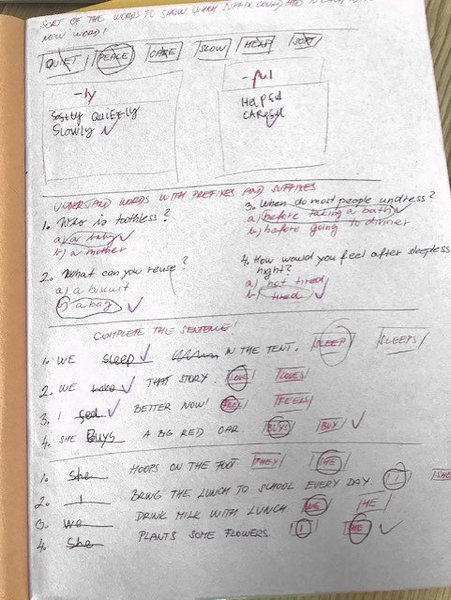 SORT OF THE WORDS TO SHOW WHICH SUFFIX COULD ADD TO EACH
NEW WORD!
QUIET PEACE CARE SLOW HELP SOFT
-ly -ful
Softly QUIETLY Helpful
Slowly CAREful
UNDERSTAND WORDS WITH PREFIXES AND SUFFIXES
1. Who is toothless?
a) a baby
b) a mother
2. What can you reuse?
a) a biscuit
b) a bag
3. When do most people undress?
a) before taking a bath
b) before going to dinner
4. How would you feel after sleepless
night?
a) not tired
b) tired
COMPLETE THE SENTENCE!
1. WE sleep IN THE TENT. SLEEP SLEEPS
2. WE THAT STORY. LOVE LOVES
3. I feel BETTER NOW! FEEL FEELS
4. SHE Buys A BIG RED CAR. BUYS BUY
1. She HOOPS ON THE FOOT. THEY SHE
2. I BRING THE LUNCH TO SCHOOL EVERY DAY. I SHE
3. we DRINK MILK WITH LUNCH. WE HE
4. She PLANTS SOME FLOWERS. I SHE